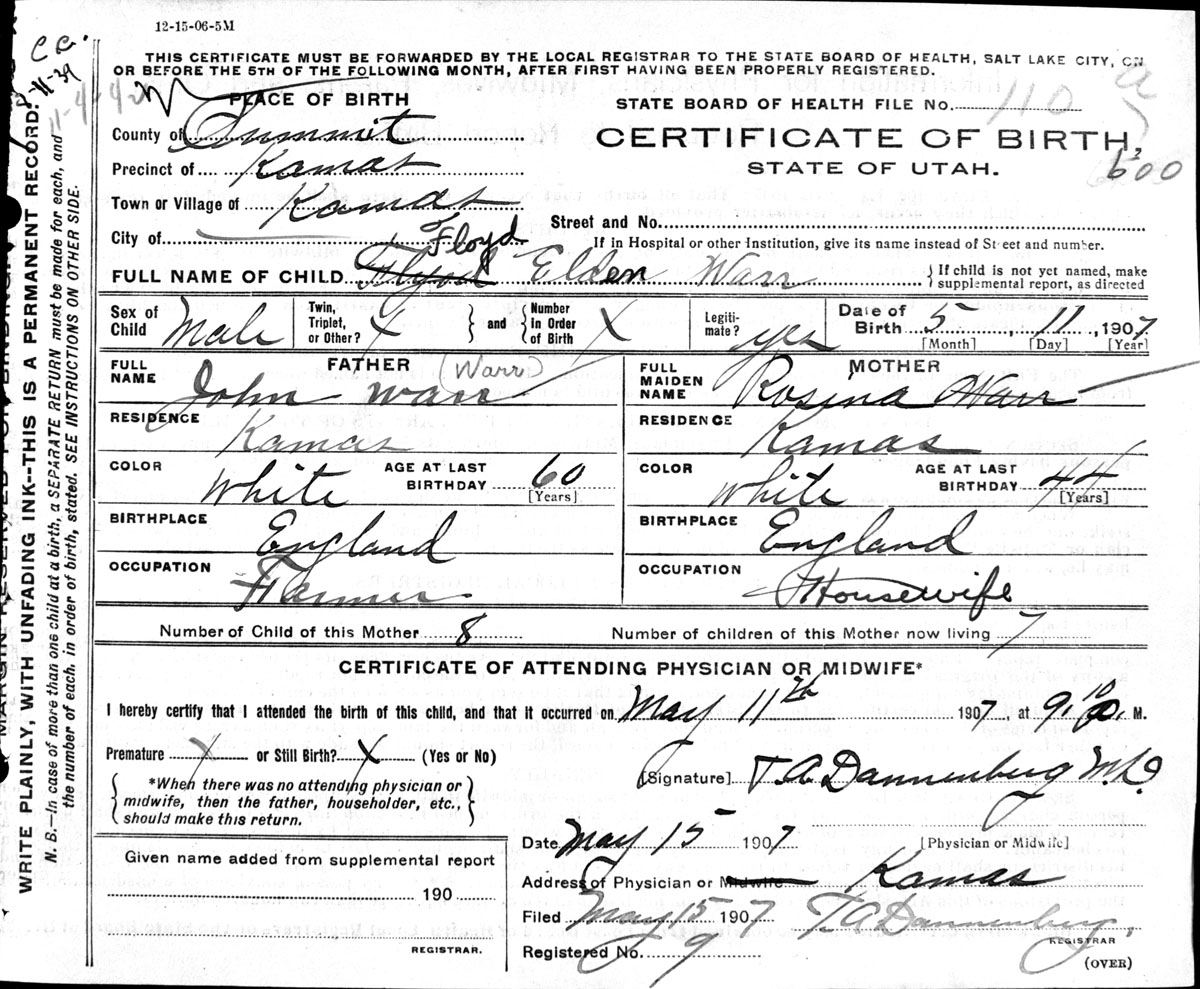 12-15-06-5M
C C.
11-39
11-4-42
THIS CERTIFICATE MUST BE FORWARDED BY THE LOCAL REGISTRAR TO THE STATE BOARD OF HEALTH, SALT LAKE CITY, ON
OR BEFORE THE 5TH OF THE FOLLOWING MONTH, AFTER FIRST HAVING BEEN PROPERLY REGISTERED.
PLACE OF BIRTH
County of Summit
Precinct of Kamas
Town or Village of Kamas
City of
STATE BOARD OF HEALTH FILE No. 110 a
CERTIFICATE OF BIRTH,
STATE OF UTAH.
600
Street and No.
If in Hospital or other Institution, give its name instead of Street and number.
Floyd
FULL NAME OF CHILD Flyod Elden Warr
If child is not yet named, make
supplemental report, as directed
Sex of Child Male
Twin, Triplet, or Other? X and Number In Order of Birth X
Legiti-mate? yes
Date of Birth 5 11, 1907
[Month] [Day] [Year]
FATHER
FULL NAME John Warr (Warr)
RESIDENCE Kamas
COLOR White AGE AT LAST BIRTHDAY 60
[Years]
BIRTHPLACE England
OCCUPATION Farmer
MOTHER
FULL MAIDEN NAME Rosina Warr
RESIDENCE Kamas
COLOR White AGE AT LAST BIRTHDAY 44
[Years]
BIRTHPLACE England
OCCUPATION Housewife
Number of Child of this Mother 8 Number of children of this Mother now living 7
CERTIFICATE OF ATTENDING PHYSICIAN OR MIDWIFE*
I hereby certify that I attended the birth of this child, and that it occurred on May 11th 1907, at 9,10 a. M.
Premature X or Still Birth? X (Yes or No)
*When there was no attending physician or
midwife, then the father, householder, etc.,
should make this return.
[Signature] T A Dannenberg M.D.
[Physician or Midwife]
Date May 15 1907
Address of Physician or Midwife Kamas
Filed May 15 1907 T. A Dannenberg,
REGISTRAR
Registered No. 9
(OVER)
Given name added from supplemental report
190
REGISTRAR.
MARGIN RESERVED FOR BINDING
WRITE PLAINLY, WITH UNFADING INK--THIS IS A PERMANENT RECORD.
N. B.—In case of more than one child at a birth, a SEPARATE RETURN must be made for each, and
the number of each, in order of birth, stated. SEE INSTRUCTIONS ON OTHER SIDE.